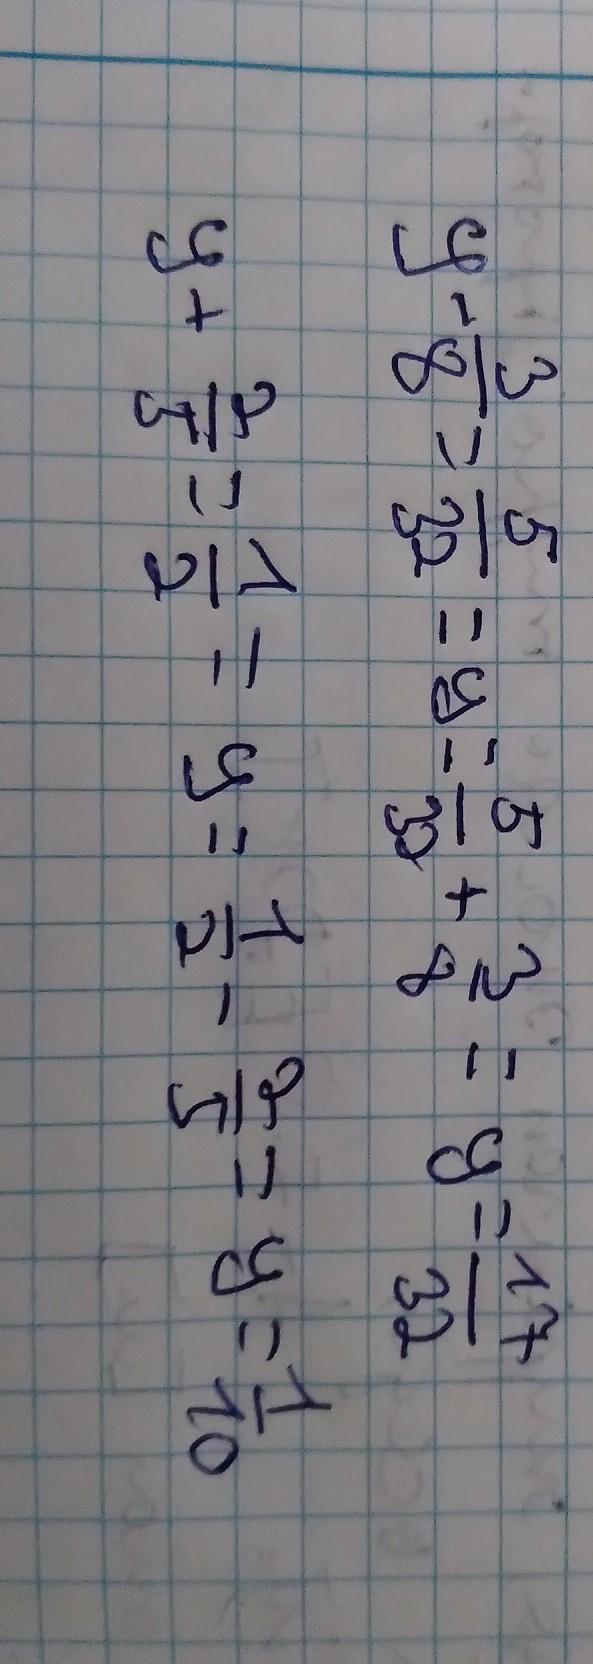 y - 3/8 = 5/32 = y = 5/32 + 3/8 = y = 17/32
y + 2/5 = 1/2 = y = 1/2 - 2/5 = y = 1/10